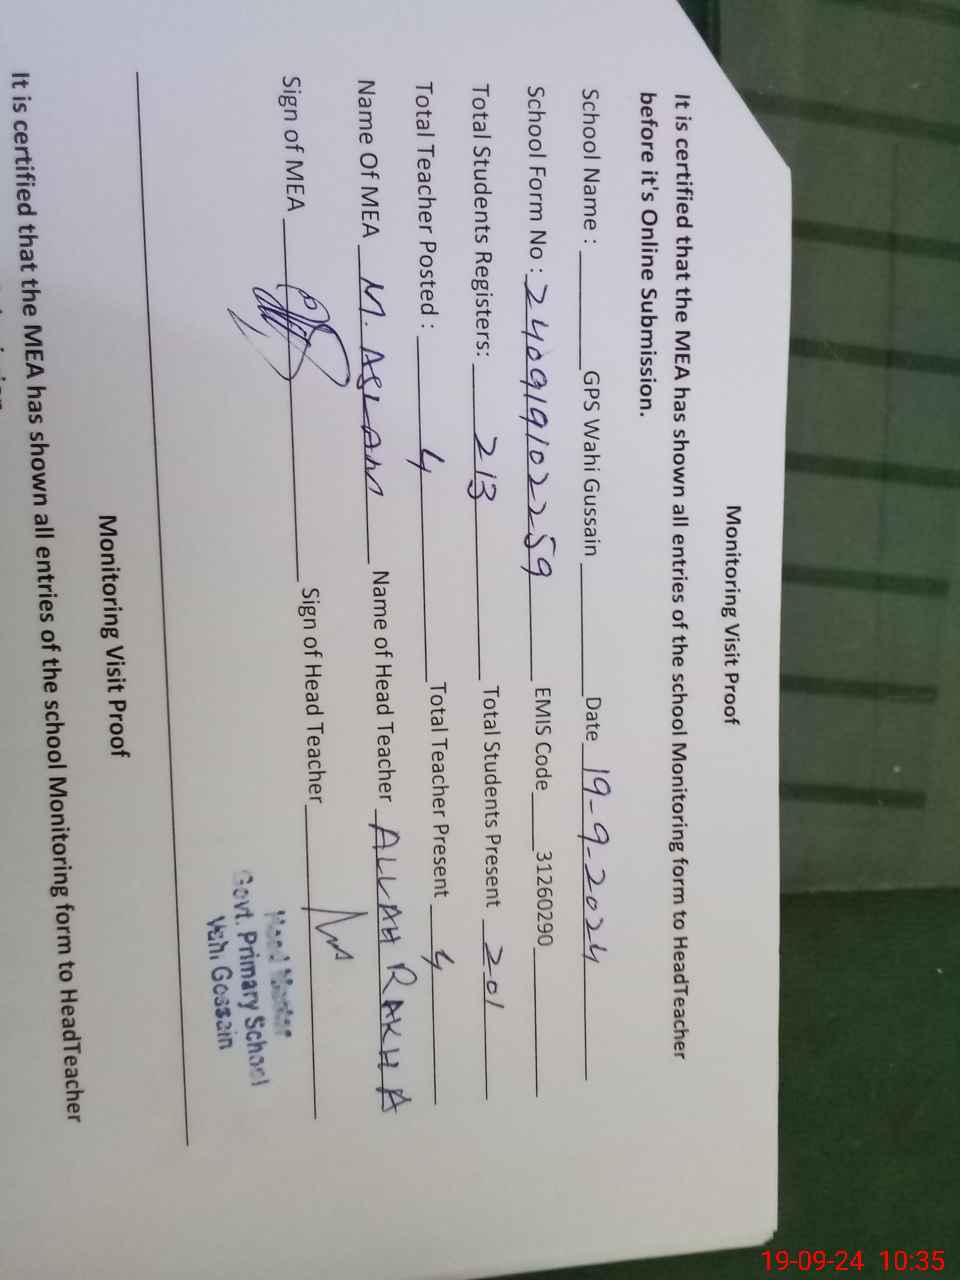 Monitoring Visit Proof
It is certified that the MEA has shown all entries of the school Monitoring form to HeadTeacher
before it's Online Submission.
School Name : GPS Wahi Gussain Date 19-9-2024
School Form No : 240919102259 EMIS Code 31260290
Total Students Registers: 213 Total Students Present 201
Total Teacher Posted : 4 Total Teacher Present 4
Name Of MEA M. ASLAM Name of Head Teacher ALLAH RAKHA
Sign of MEA Sign of Head Teacher
Head Master
Govt. Primary School
Vahi Gossain
Monitoring Visit Proof
It is certified that the MEA has shown all entries of the school Monitoring form to HeadTeacher
19-09-24 10:35